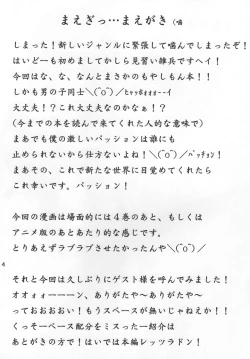 まえぎっ…まえがき（噛
しまった！新しいジャンルに緊張して噛んでしまったぞ！
はいどーも初めましてかしら見習い雑兵ですヘイ！
今回はな、な、なんとまさかのもやしもん本！！
しかも男の子同士＼(^o^)／ﾋｬｯﾎｫｫｫｰｰｲ
大丈夫！？これ大丈夫なのかなぁ！？
（今までの本を読んで来てくれた人的な意味で）
まあでも僕の激しいパッションは誰にも
止められないから仕方ないよね！＼(^o^)／ﾊﾟｯﾁｮﾝ！
まあその、これで新たな世界に目覚めてくれたら
これ幸いです。パッション！
今回の漫画は場面的には４巻のあと、もしくは
アニメ版のあとあたり的な感じです。
とりあえずラブラブさせたかったんや＼(^o^)／
4
それと今回は久しぶりにゲスト様を呼んでみました！
オオォィーーーン、ありがたや～ありがたや～
っておおおおい！もうスペースが無いじゃねえか！！
くっそーペース配分をミスった一紹介は
あとがきの方で！はいでは本編レッツラドン！